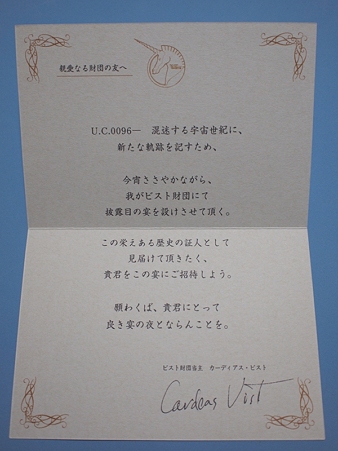 親愛なる財団の友へ
U.C.0096― 混迷する宇宙世紀に、
新たな軌跡を記すため、
今宵ささやかながら、
我がビスト財団にて
披露目の宴を設けさせて頂く。
この栄えある歴史の証人として
見届けて頂きたく、
貴君をこの宴にご招待しよう。
願わくば、貴君にとって
良き宴の夜とならんことを。
ビスト財団当主 カーディアス・ビスト
Cardeas Vist